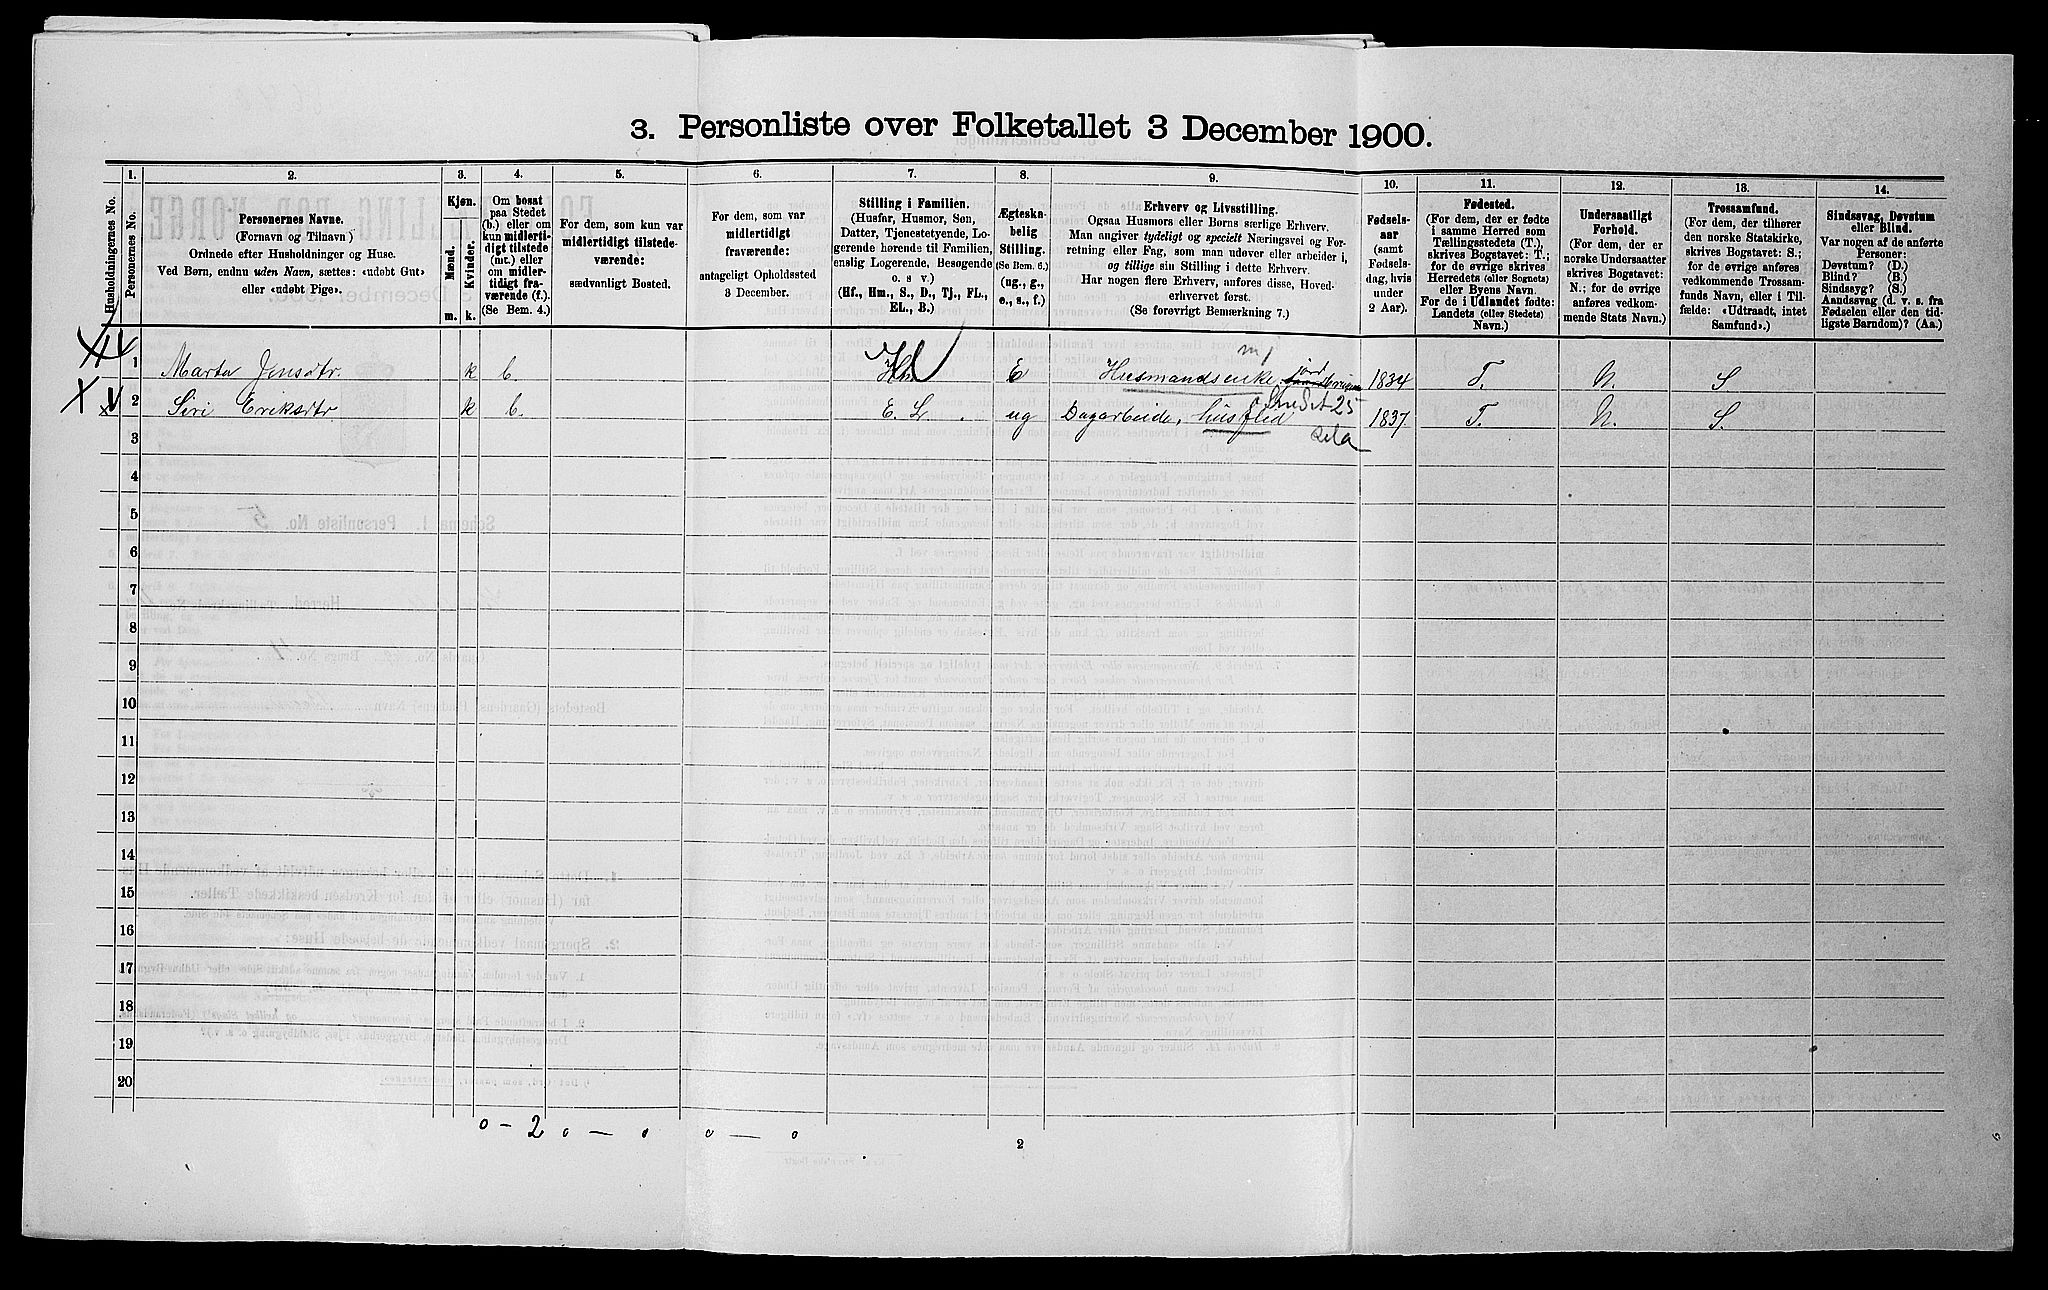 3. Personliste over Folketallet 3 December 1900.
1. 2. 3. 4. 5. 6. 7. 8. 9. 10. 11. 12. 13. 14.
Husholdningernes No.
Personernes No.
Personernes Navne.
(Fornavn og Tilnavn)
Ordnede efter Husholdninger og Huse.
Ved Børn, endnu uden Navn, sættes: «udøbt Gut»
eller «udøbt Pige».
Kjøn.
Mænd.
Kvinder.
m. k.
Om bosat
paa Stedet
(b.) eller om
kun midlerti-
digt tilstede
(mt.) eller
om midler-
tidigt fra-
værende (f.).
(Se Bem. 4.)
For dem, som kun var
midlertidigt tilstede-
værende:
sædvanligt Bosted.
For dem, som var
midlertidigt
fraværende:
antageligt Opholdssted
3 December.
Stilling i Familien.
(Husfar, Husmor, Søn,
Datter, Tjenestetyende, Lo-
gerende hørende til Familien,
enslig Logerende, Besøgende
o. s v.)
(Hf., Hm., S., D., Tj., FL.,
EL., B.)
Ægteska-
belig
Stilling.
(Se Bem. 6.)
(ug., g.,
e., s., f.)
Erhverv og Livsstilling.
Ogsaa Husmors eller Børns særlige Erhverv.
Man angiver tydeligt og specielt Næringsvei og For-
retning eller Fag, som man udøver eller arbeider i,
og tillige sin Stilling i dette Erhverv.
Har nogen flere Erhverv, anføres disse, Hoved-
erhvervet først.
(Se forøvrigt Bemærkning 7.)
Fødsels-
aar
(samt
Fødsels-
dag, hvis
under
2 Aar).
Fødested.
(For dem, der er fødte
i samme Herred som
Tællingsstedets (T.),
skrives Bogstavet: T.;
for de øvrige skrives
Herredets (eller Sognets)
eller Byens Navn.
For de i Udlandet fødte:
Landets (eller Stedets)
Navn.)
Undersaatligt
Forhold.
(For dem, der er
norske Undersaatter
skrives Bogstavet:
N.; for de øvrige
anføres vedkom-
mende Stats Navn.)
Trossamfund.
(For dem, der tilhører
den norske Statskirke,
skrives Bogstavet: S.;
for de øvrige anføres
vedkommende Trossam-
funds Navn, eller i Til-
fælde: «Udtraadt, intet
Samfund».)
Sindssvag, Døvstum
eller Blind.
Var nogen af de anførte
Personer:
Døvstum? (D.)
Blind? (B.)
Sindssyg? (S.)
Aandssvag (d. v. s. fra
Fødselen eller den tid-
ligste Barndom)? (Aa.)
1 Marta Jensdtr. k b. Hm E Husmandsenke, jord 1834 T. N. S
2 Siri Eriksdtr k b. E. L. ug Dagarbeide, husflid 1837. T. N. S.
3
4
5
6
7
8
9
10
11
12
13
14
15
16
17
18
19
20
0 – 2 0 — 0 0 — 0
2